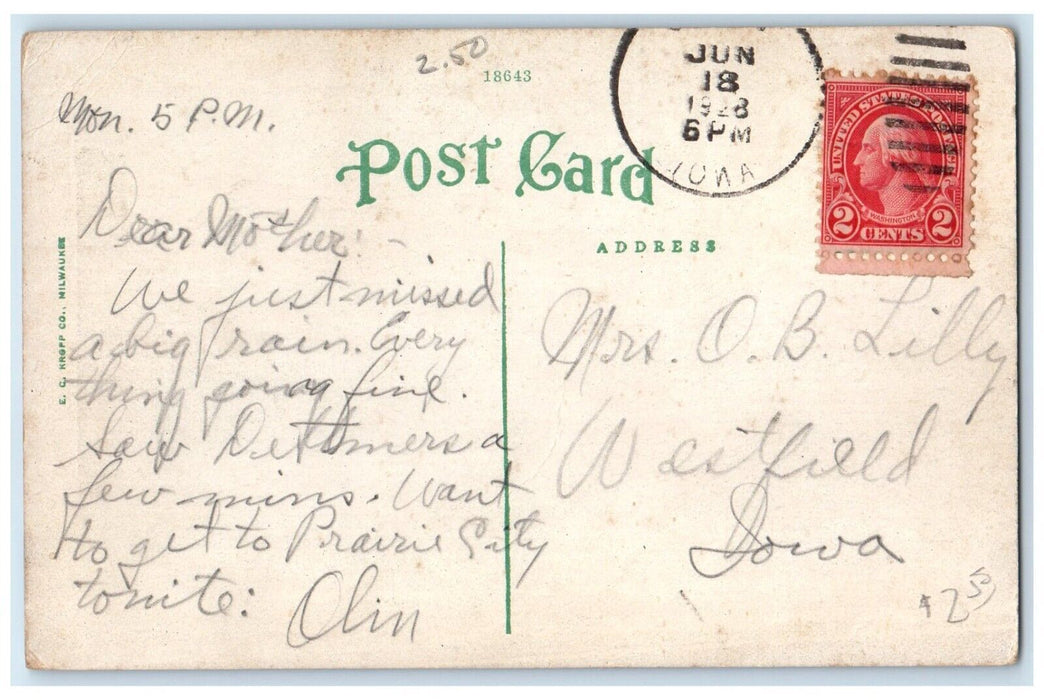 2.50
18643
JUN
18
1928
6 PM
IOWA
UNITED STATES POSTAGE
WASHINGTON
2 CENTS 2
Mon. 5 P.M.
POST CARD
ADDRESS
E. C. KROPP CO., MILWAUKEE
Dear Mother: -
We just missed
a big rain. Every
thing going fine.
Saw Dettmers a
few mins. Want
to get to Prairie City
tonite:
Olin
Mrs. O. B. Lilly
Westfield
Iowa
$2.50